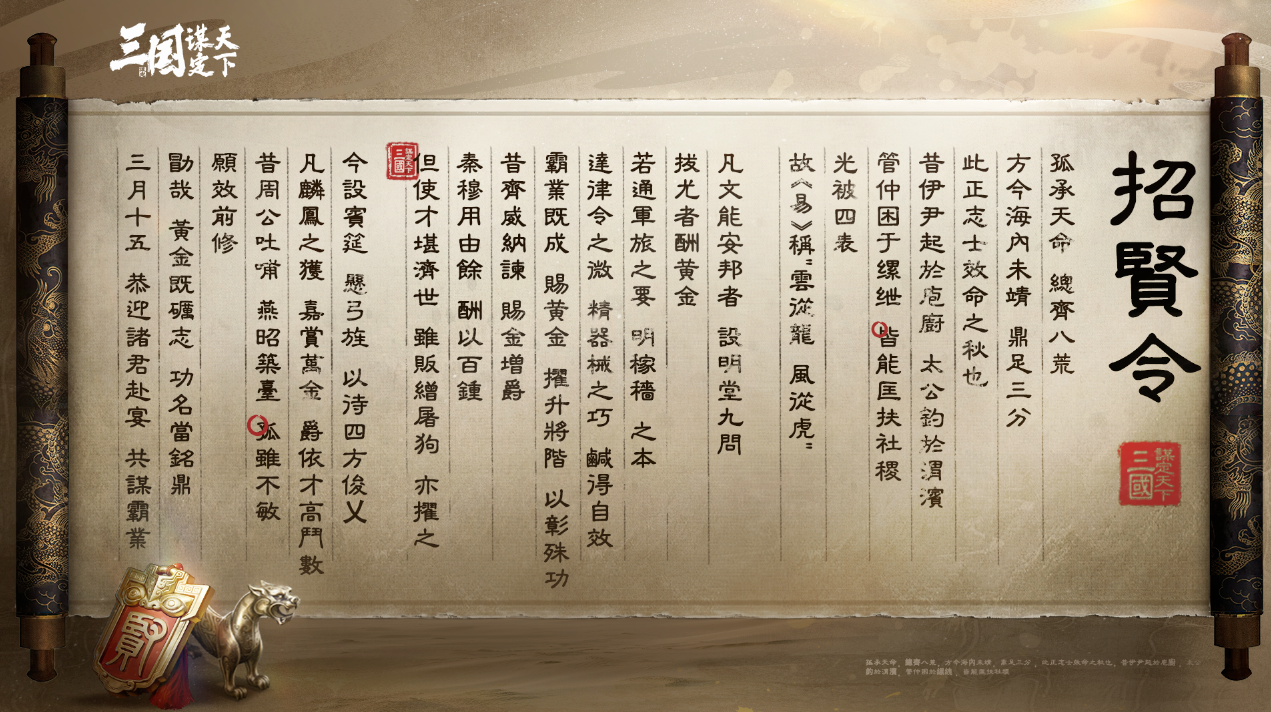 招賢令
孤承天命 總齊八荒
方今海內未靖 鼎足三分
此正志士效命之秋也
昔伊尹起於庖廚 太公釣於渭濱
管仲困于缧绁 皆能匡扶社稷
光被四表
故《易》稱"雲從龍 風從虎"
凡文能安邦者 設明堂九問
拔尤者酬黄金
若通軍旅之要 明稼穡 之本
達律令之微 精器械之巧 鹹得自效
霸業既成 賜黄金 擢升將階 以彰殊功
昔齊威納諫 賜金增爵
秦穆用由餘 酬以百鍾
但使才堪濟世 雖販繒屠狗 亦擢之
今設賓筵 懸弓旌 以待四方俊乂
凡麟鳳之獲 嘉賞萬金 爵依才高鬥數
昔周公吐哺 燕昭築臺 孤雖不敏
願效前修
勖哉 黃金既礪志 功名當銘鼎
三月十五 恭迎諸君赴宴 共謀霸業
三國
謀定天下
三國
謀定天下
三国
谋定天下
賢